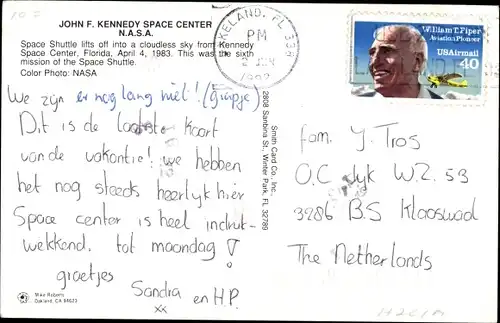 10:=
JOHN F. KENNEDY SPACE CENTER
N.A.S.A.
Space Shuttle lifts off into a cloudless sky from Kennedy
Space Center, Florida, April 4, 1983. This was the sixth
mission of the Space Shuttle.
Color Photo: NASA
LAKELAND, FL 338
PM
2 JUN
1992
William T. Piper
Aviation Pioneer
USAirmail
40
We zijn er nog lang niet! (grapje)
Dit is de laatste kaart
van de vakantie! we hebben
het nog steeds heerlijk hier
Space center is heel indruk-
wekkend. tot maandag!
groetjes
Sandra en H.P.
xx
Smith Card Co., Inc.,
2808 Sanbina St., Winter Park, FL 32789
fam. J. Tros
O.C. dyk W.Z. 53
3286 B.S Klaaswaal
The Netherlands
Mike Roberts
Oakland, CA 94623